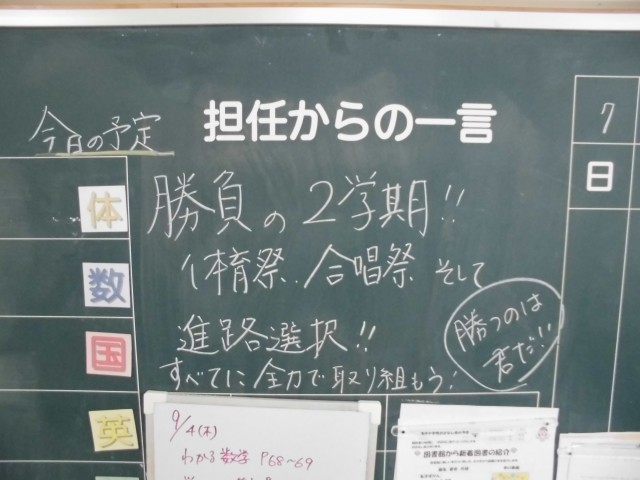 今日の予定
担任からの一言
7
日
体
数
国
英
勝負の2学期!!
体育祭、合唱祭 そして
進路選択!!
すべてに全力で取り組もう!
勝つのは
君だ!!
9/4(木)
わかる数学 P68〜69
図書館から新着図書の紹介